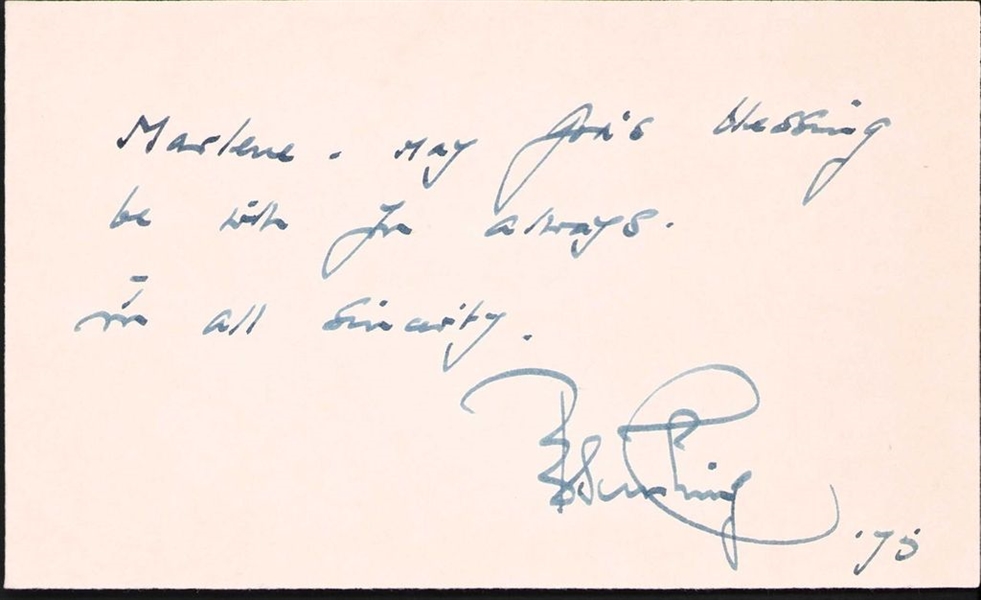 Marlene. May God's blessing
be with you always.
In all sincerity.
Peter Cushing
'75